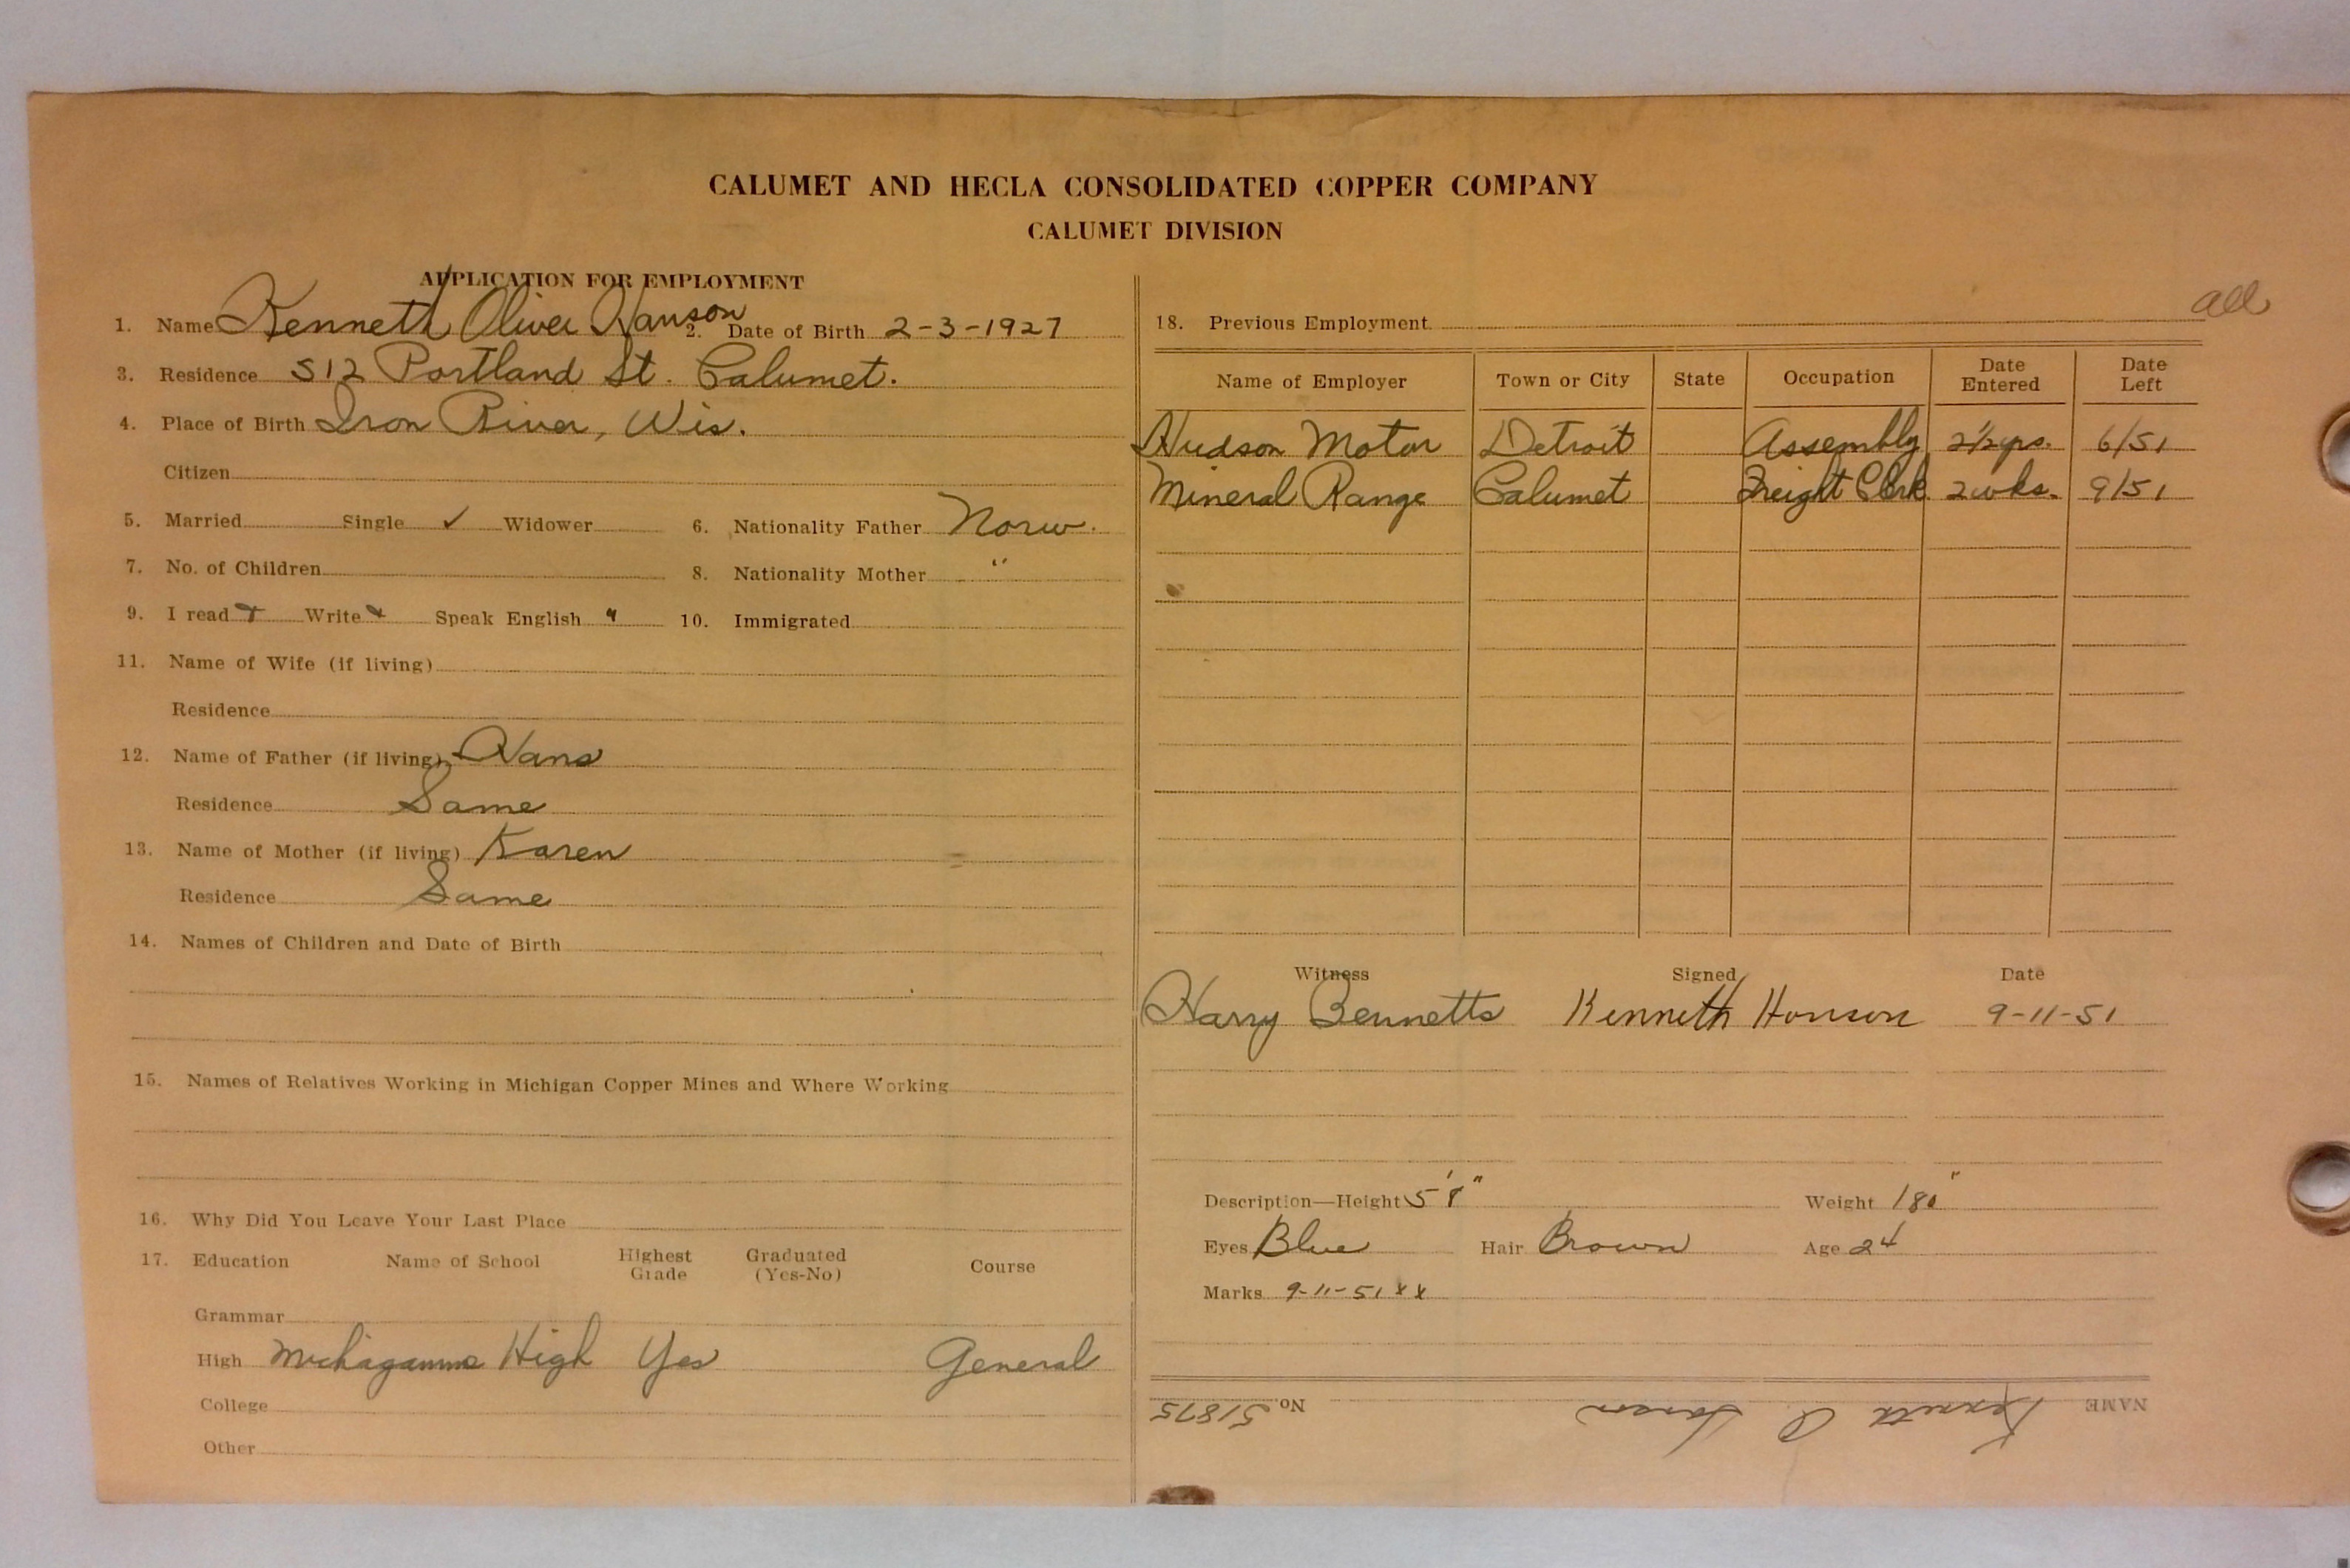 CALUMET AND HECLA CONSOLIDATED COPPER COMPANY
CALUMET DIVISION
APPLICATION FOR EMPLOYMENT
1. Name Kenneth Oliver Hanson 2. Date of Birth 2-3-1927
3. Residence 512 Portland St. Calumet.
4. Place of Birth Iron River, Wis.
Citizen
5. Married Single ✓ Widower 6. Nationality Father Norw.
7. No. of Children 8. Nationality Mother "
9. I read Write Speak English " 10. Immigrated
11. Name of Wife (if living)
Residence
12. Name of Father (if living) Hans
Residence Same
13. Name of Mother (if living) Karen
Residence Same
14. Names of Children and Date of Birth
15. Names of Relatives Working in Michigan Copper Mines and Where Working
16. Why Did You Leave Your Last Place
17. Education Name of School Highest Grade Graduated (Yes-No) Course
Grammar
High Michagamme High Yes General
College
Other
all
18. Previous Employment
Name of Employer Town or City State Occupation Date Entered Date Left
Hudson Motor Detroit Assembly 2½ yrs. 6/51
Mineral Range Calumet Freight Clerk 2 wks. 9/51
Witness Signed Date
Harry Bennetts Kenneth Hanson 9-11-51
Description—Height 5'8" Weight 180
Eyes Blue Hair Brown Age 24
Marks 9-11-51 xx
NAME Kenneth O. Hanson No. 51875